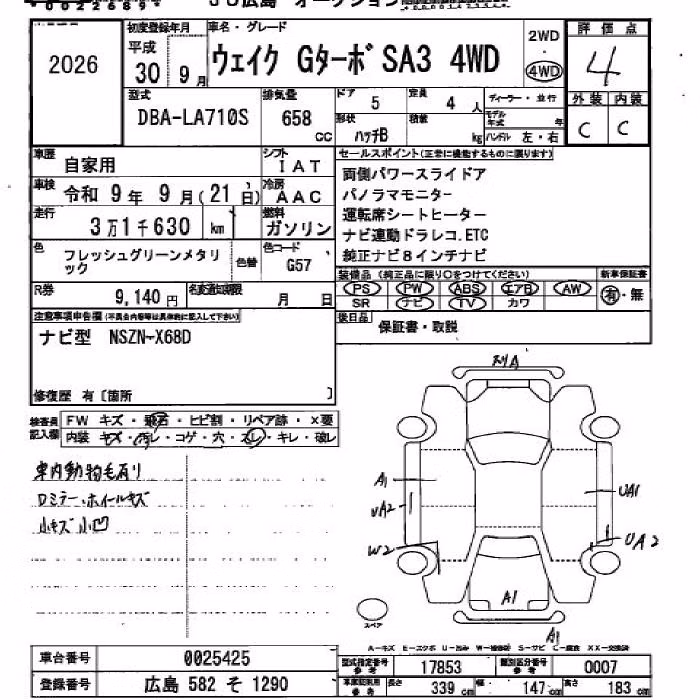 2026
初度登録年月
平成
30 9月
車名・グレード
ウェイク Gターボ SA3 4WD
2WD
4WD
評価点
4
外装 内装
C C
型式
DBA-LA710S
排気量
658 cc
ドア 5
定員 4 人
ディーラー・並行
形状 ハッチB
積載 kg
モデル年式 年
ハンドル 左・右
車歴 自家用
シフト IAT
車検 令和 9年 9月(21日)
冷房 AAC
走行 3万1千630 km
燃料 ガソリン
色 フレッシュグリーンメタリック
色替
色コード G57
R券 9,140円
名変通知期限 月 日
セールスポイント(正常に機能するものに限ります)
両側パワースライドア
パノラマモニター
運転席シートヒーター
ナビ連動ドラレコ.ETC
純正ナビ8インチナビ
装備品(純正品に限り○をつけてください)
新車保証書
PS PW ABS エアB AW
SR ナビ TV カワ
有・無
後日品 保証書・取説
注意事項申告欄(不具合内容等は具体的に記入して下さい)
ナビ型 NSZN-X68D
修復歴 有〔箇所 〕
検査員記入欄
FW キズ・飛石・ヒビ割・リペア跡・X要
内装 キズ・汚レ・コゲ・穴・スレ・キレ・破レ
車内動物毛有り
Dミラー・ホイールキズ
小キズ 小凹
A1
UA2
W2
UA1
UA2
A1
A1
スペア
A-キズ E-エクボ U-凹み W-補修跡 S-サビ C-腐食 XX-交換済
車台番号 0025425
登録番号 広島 582 そ 1290
型式指定番号 参考 17853
類別区分番号 参考 0007
車両証明用 参考 長さ 339 cm 幅 147 cm 高さ 183 cm